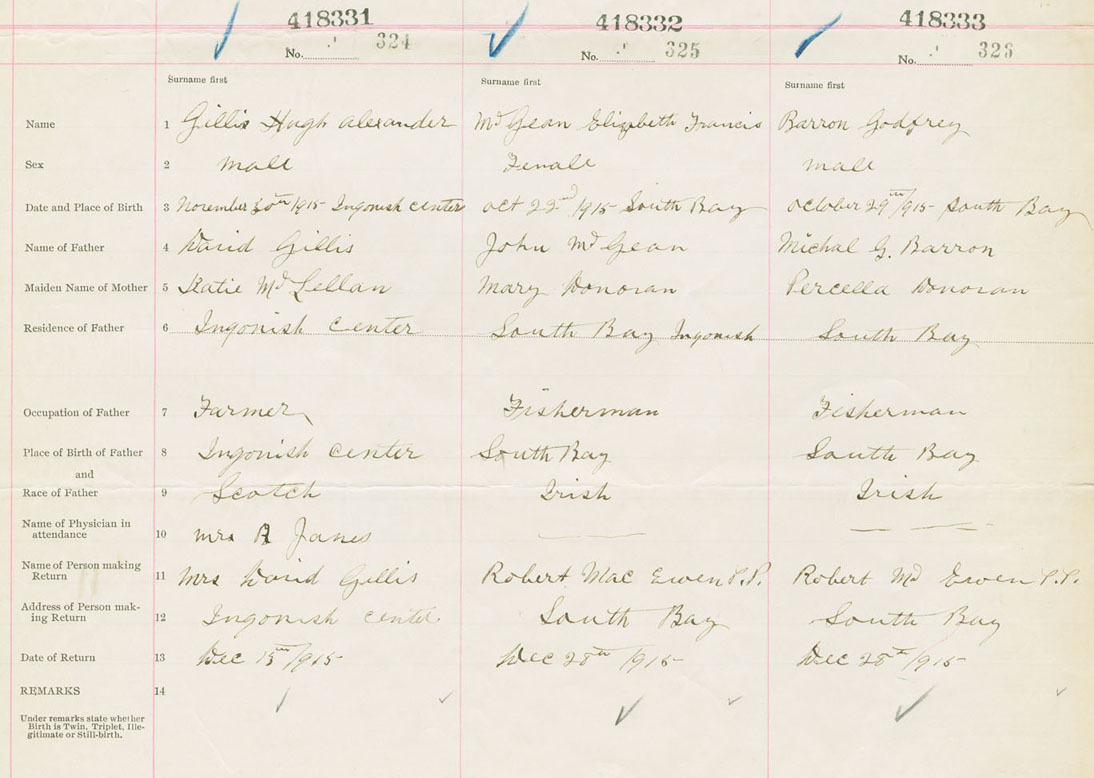 418331 418332 418333
No. 324 No. 325 No. 326
Surname first Surname first Surname first
Name 1 Gillis Hugh alexander McGean Elizabeth Francis Barron Godfrey
Sex 2 male Female male
Date and Place of Birth 3 November 30th 1915 Ingonish center Oct 22nd 1915 South Bay October 29th 1915 South Bay
Name of Father 4 David Gillis John McGean Michal G. Barron
Maiden Name of Mother 5 Katie McLellan Mary Donovan Percella Donovan
Residence of Father 6 Ingonish center South Bay Ingonish South Bay
Occupation of Father 7 Farmer Fisherman Fisherman
Place of Birth of Father 8 Ingonish center South Bay South Bay
and
Race of Father 9 Scotch Irish Irish
Name of Physician in
attendance 10 mrs A Janes
Name of Person making
Return 11 Mrs David Gillis Robert Mac Ewen P.P. Robert Mc Ewen P.P.
Address of Person mak-
ing Return 12 Ingonish center South Bay South Bay
Date of Return 13 Dec 15th 1915 Dec 28th 1915 Dec 28th 1915
REMARKS 14
Under remarks state whether
Birth is Twin, Triplet, Ille-
gitimate or Still-birth.